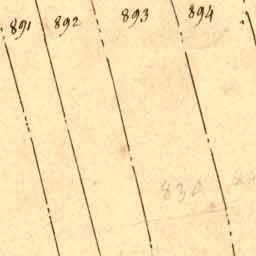 891 892 893 894